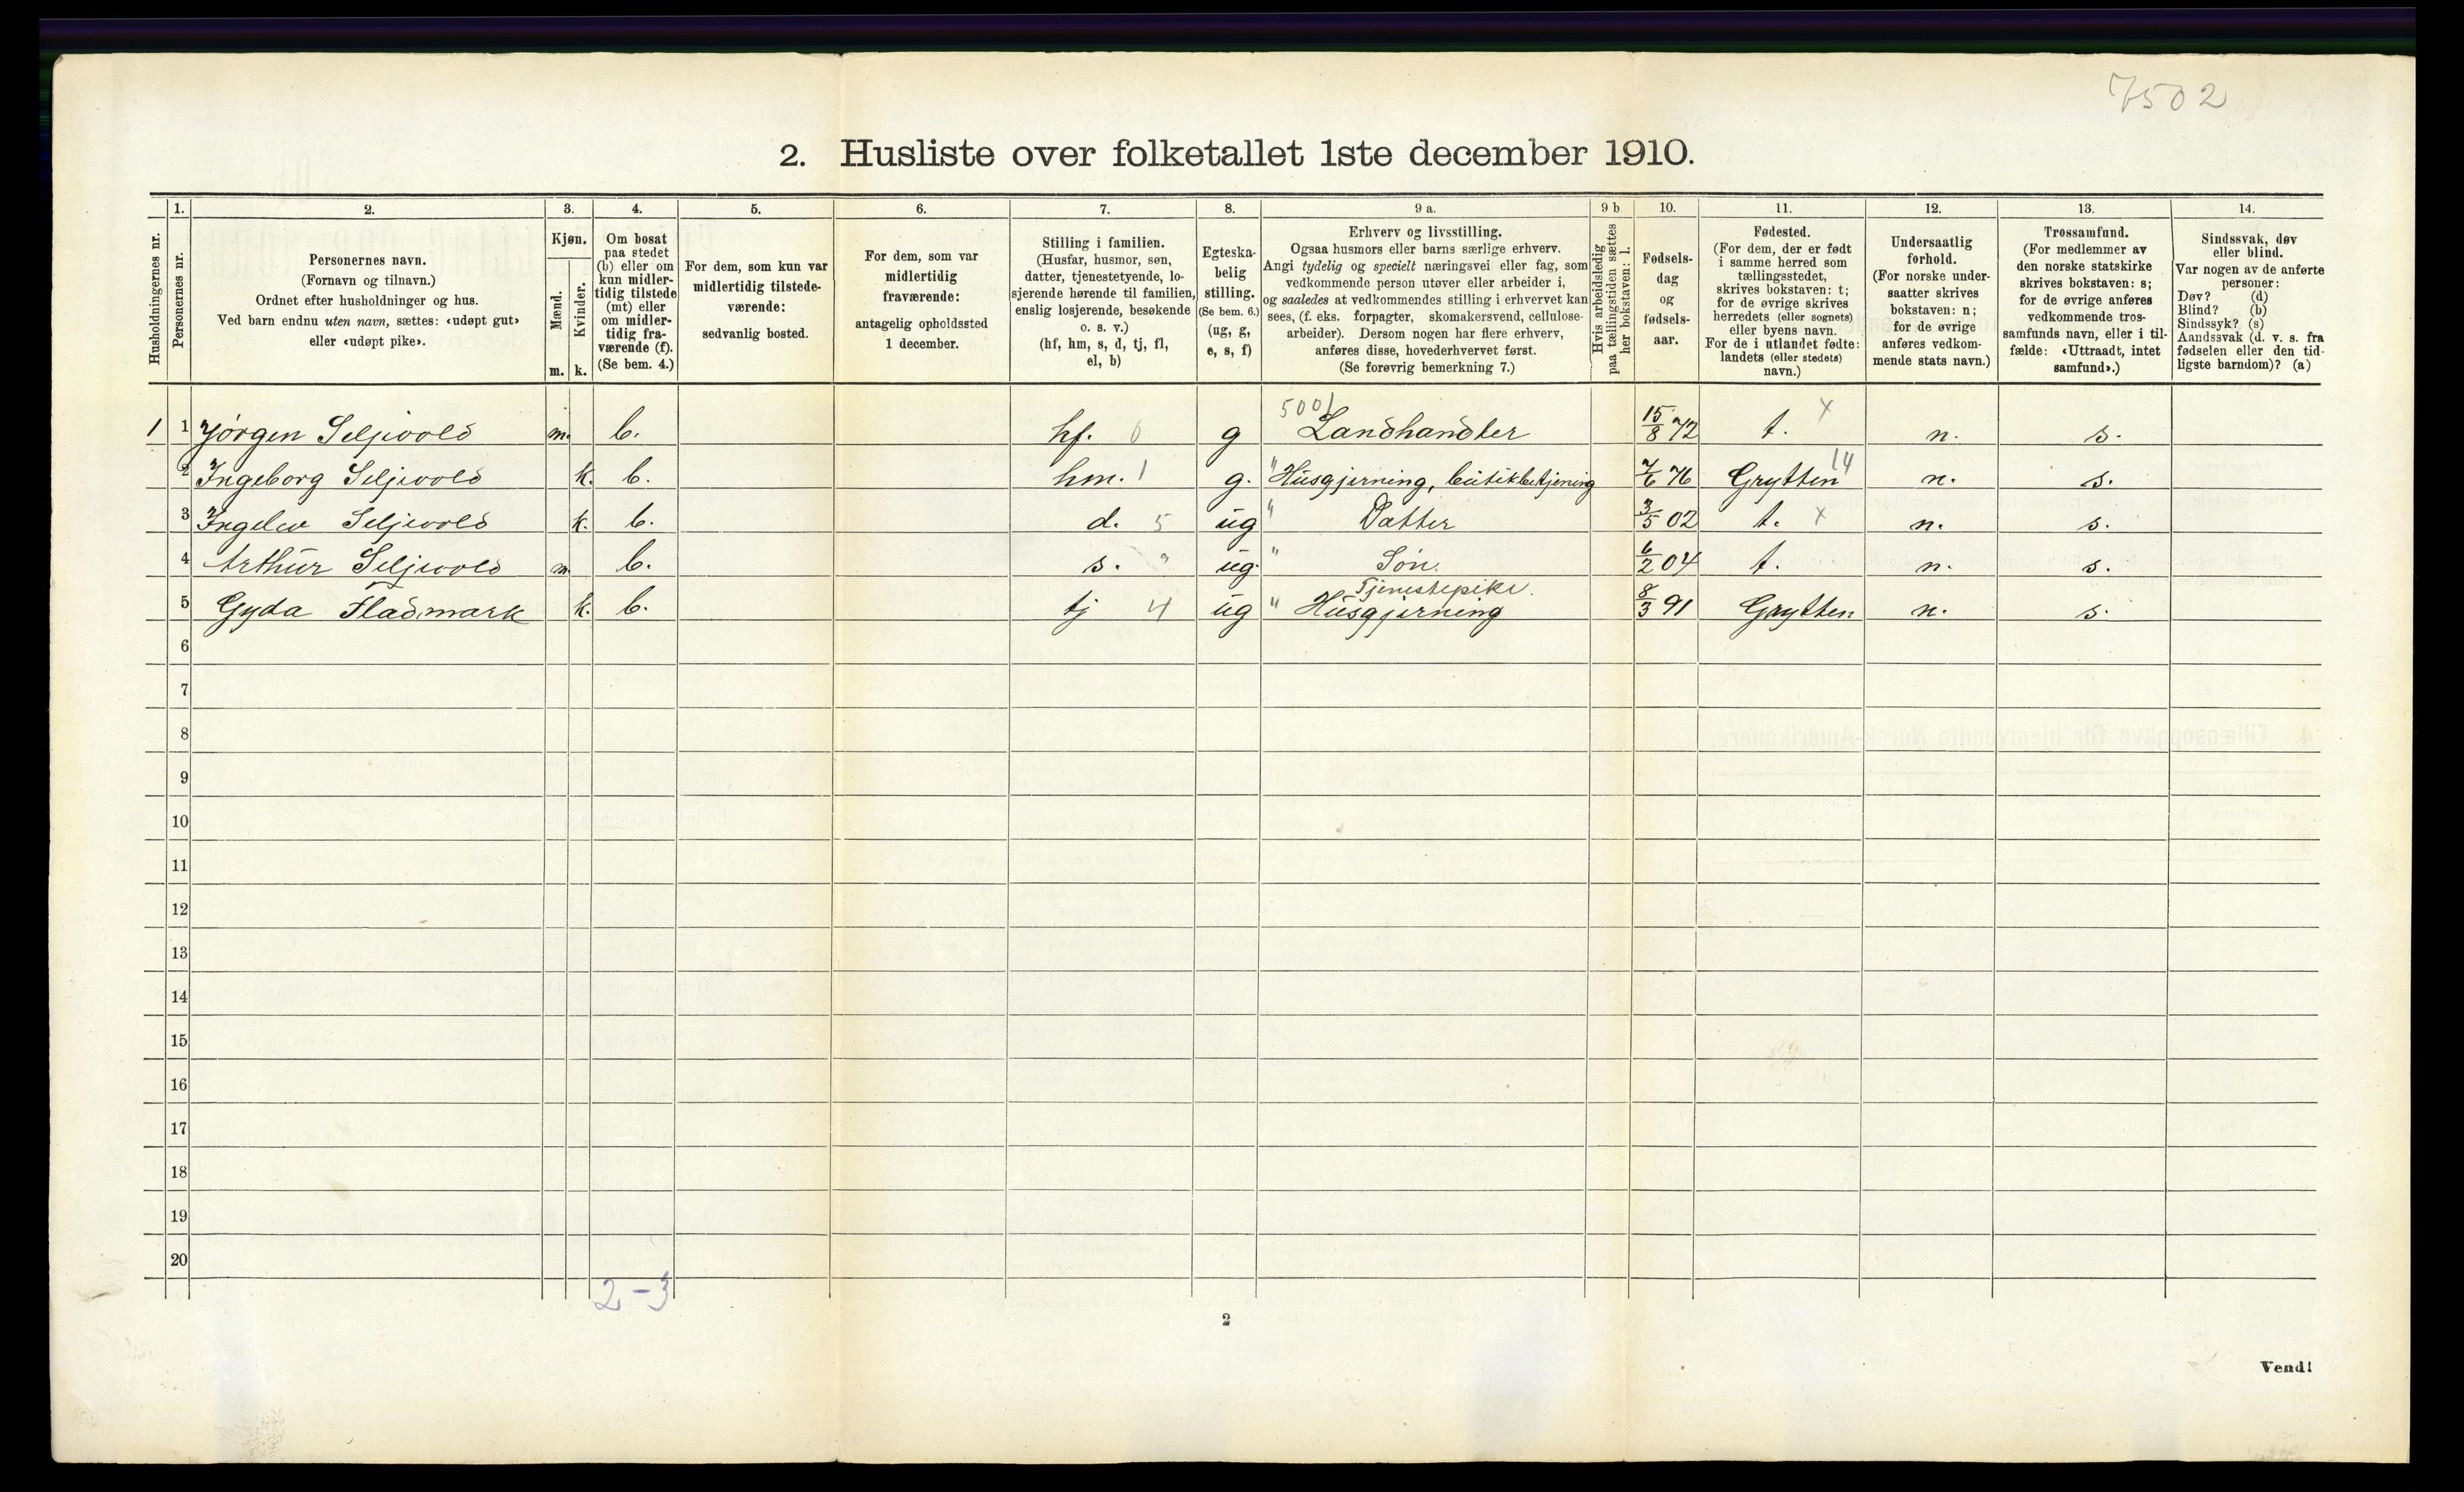 7502
2. Husliste over folketallet 1ste december 1910.
Husholdningernes nr.
1.
Personernes nr.
2.
Personernes navn.
(Fornavn og tilnavn.)
Ordnet efter husholdninger og hus.
Ved barn endnu uten navn, sættes: «udøpt gut»
eller «udøpt pike».
3.
Kjøn.
Mænd.
Kvinder.
m. k.
4.
Om bosat
paa stedet
(b) eller om
kun midler-
tidig tilstede
(mt) eller
om midler-
tidig fra-
værende (f).
(Se bem. 4.)
5.
For dem, som kun var
midlertidig tilstede-
værende:
sedvanlig bosted.
6.
For dem, som var
midlertidig
fraværende:
antagelig opholdssted
1 december.
7.
Stilling i familien.
(Husfar, husmor, søn,
datter, tjenestetyende, lo-
sjerende hørende til familien,
enslig losjerende, besøkende
o. s. v.)
(hf, hm, s, d, tj, fl,
el, b)
8.
Egteska-
belig
stilling.
(Se bem. 6.)
(ug, g,
e, s, f)
9 a.
Erhverv og livsstilling.
Ogsaa husmors eller barns særlige erhverv.
Angi tydelig og specielt næringsvei eller fag, som
vedkommende person utøver eller arbeider i,
og saaledes at vedkommendes stilling i erhvervet kan
sees, (f. eks. forpagter, skomakersvend, cellulose-
arbeider). Dersom nogen har flere erhverv,
anføres disse, hovederhvervet først.
(Se forøvrig bemerkning 7.)
9 b
Hvis arbeidsledig
paa tællingstiden sættes
her bokstaven: l.
10.
Fødsels-
dag
og
fødsels-
aar.
11.
Fødested.
(For dem, der er født
i samme herred som
tællingsstedet,
skrives bokstaven: t;
for de øvrige skrives
herredets (eller sognets)
eller byens navn.
For de i utlandet fødte:
landets (eller stedets)
navn.)
12.
Undersaatlig
forhold.
(For norske under-
saatter skrives
bokstaven: n;
for de øvrige
anføres vedkom-
mende stats navn.)
13.
Trossamfund.
(For medlemmer av
den norske statskirke
skrives bokstaven: s;
for de øvrige anføres
vedkommende tros-
samfunds navn, eller i til-
fælde: «Uttraadt, intet
samfund».)
14.
Sindssvak, døv
eller blind.
Var nogen av de anførte
personer:
Døv? (d)
Blind? (b)
Sindssyk? (s)
Aandssvak (d. v. s. fra
fødselen eller den tid-
ligste barndom)? (a)
5001 x
1 1 Jørgen Seljevold m. b. hf. 0 g Landhandler 15/8 72 t. n. s.
14
2 Ingeborg Seljevold k. b. hm. 1 g. " Husgjerning, butikbetjening 7/6 76 Grytten n. s.
3 Ingelev Seljevold k. b. d. 5 ug " Datter 3/5 02 t. x n. s.
4 Arthur Seljevold m. b. s. " ug. " Søn. 6/2 04 t. n. s.
Tjenestepike.
5 Gyda Fladmark k. b. tj 4 ug " Husgjerning 8/3 91 Grytten n. s.
6
7
8
9
10
11
12
13
14
15
16
17
18
19
20
2-3
2
Vend!